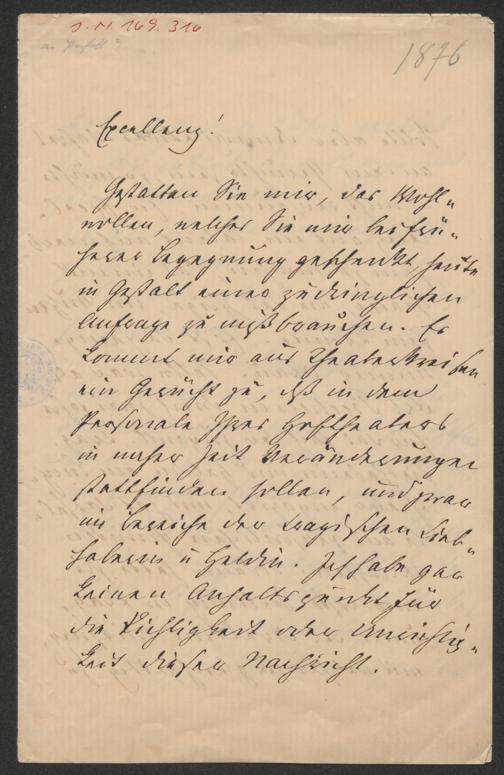 J. N. 169.316
an Perfall?
1876
Excellenz!
Gestatten Sie mir, das Wohl-
wollen, welches Sie mir bei frü-
herer Begegnung geschenkt, heute
in Gestalt einer zudringlichen
Anfrage zu mißbrauchen. Es
kommt mir aus Theaterkreisen
ein Gerücht zu, daß in dem
Personale Ihres Hoftheaters
in naher Zeit Veränderungen
stattfinden sollen, und zwar
im Bereiche der tragischen Lieb-
haberin u Heldin. Ich habe gar
keinen Anhaltspunkt für
die Richtigkeit oder Unrichtig-
keit dieser Nachricht.